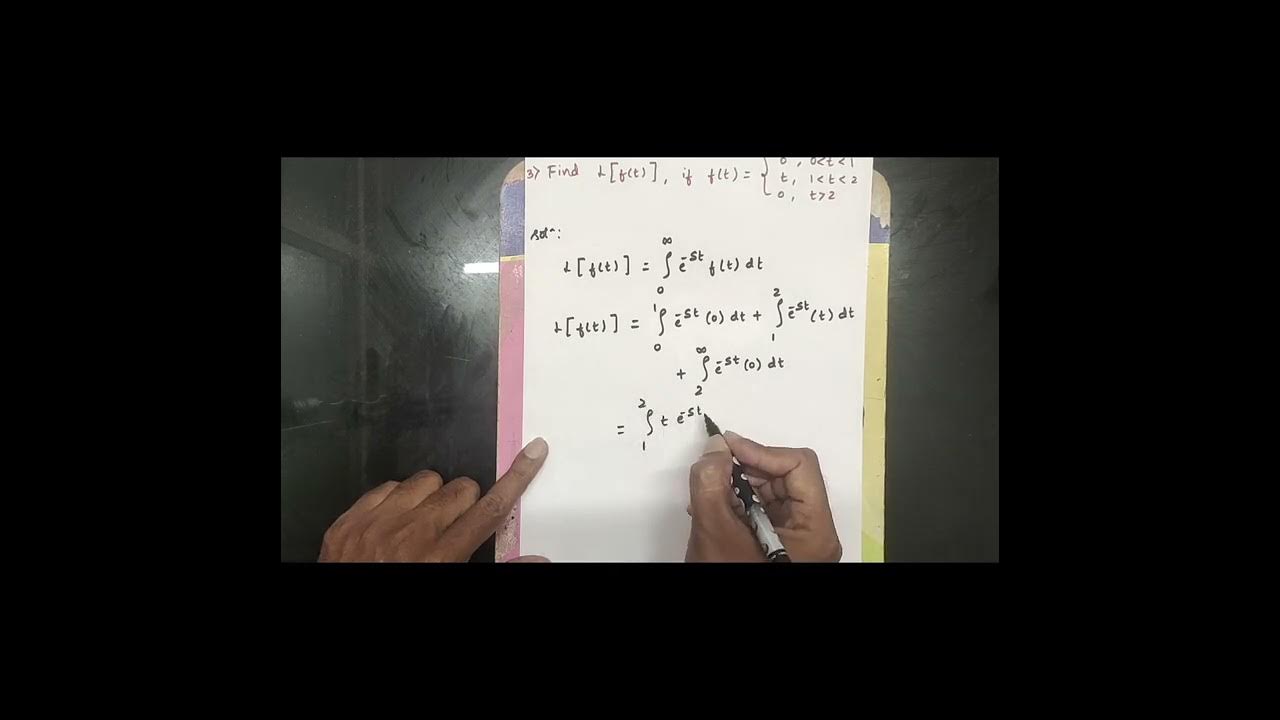 3> Find L[f(t)], if f(t) = { 0, 0<t<1
t, 1<t<2
0, t>2
Solⁿ:
L[f(t)] = ∫₀^∞ e^-st f(t) dt
L[f(t)] = ∫₀¹ e^-st (0) dt + ∫₁² e^-st (t) dt
+ ∫₂^∞ e^-st (0) dt
= ∫₁² t e^-st